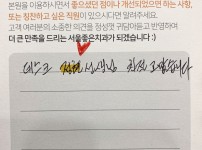 본원을 이용하시면서 좋으셨던 점이나 개선되었으면 하는 사항,
또는 칭찬하고 싶은 직원이 있으시다면 말해주세요.
고객 여러분의 소중한 의견을 정성껏 귀담아듣고 반영하여
더 큰 만족을 드리는 서울좋은치과가 되겠습니다 :)
데스크 선생님 친절